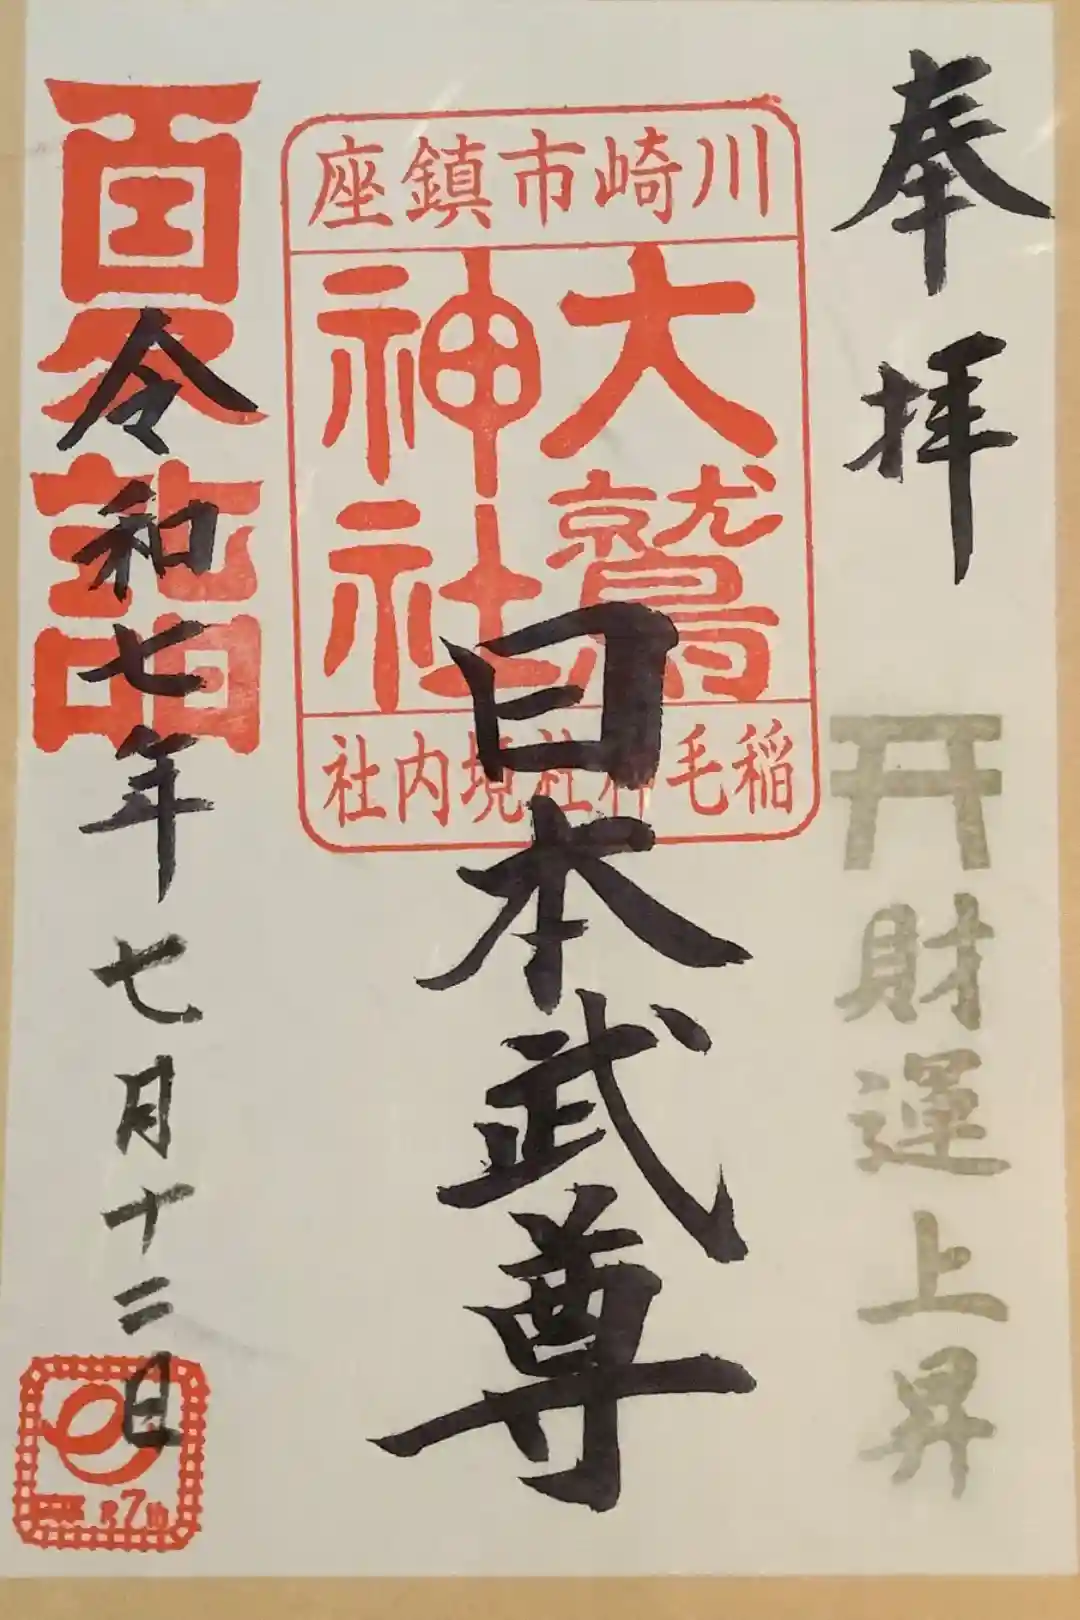 奉拝
財運上昇
川崎市鎮座
大鷲
神社
稲毛神社境内社
日本武尊
夏詣
令和七年七月十二日